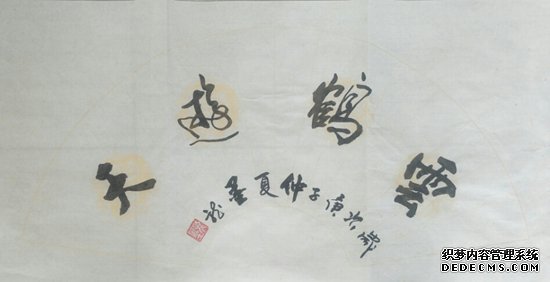 雲鶴遊天
歲次庚子仲夏墨龙
织梦内容管理系统
DEDECMS.COM